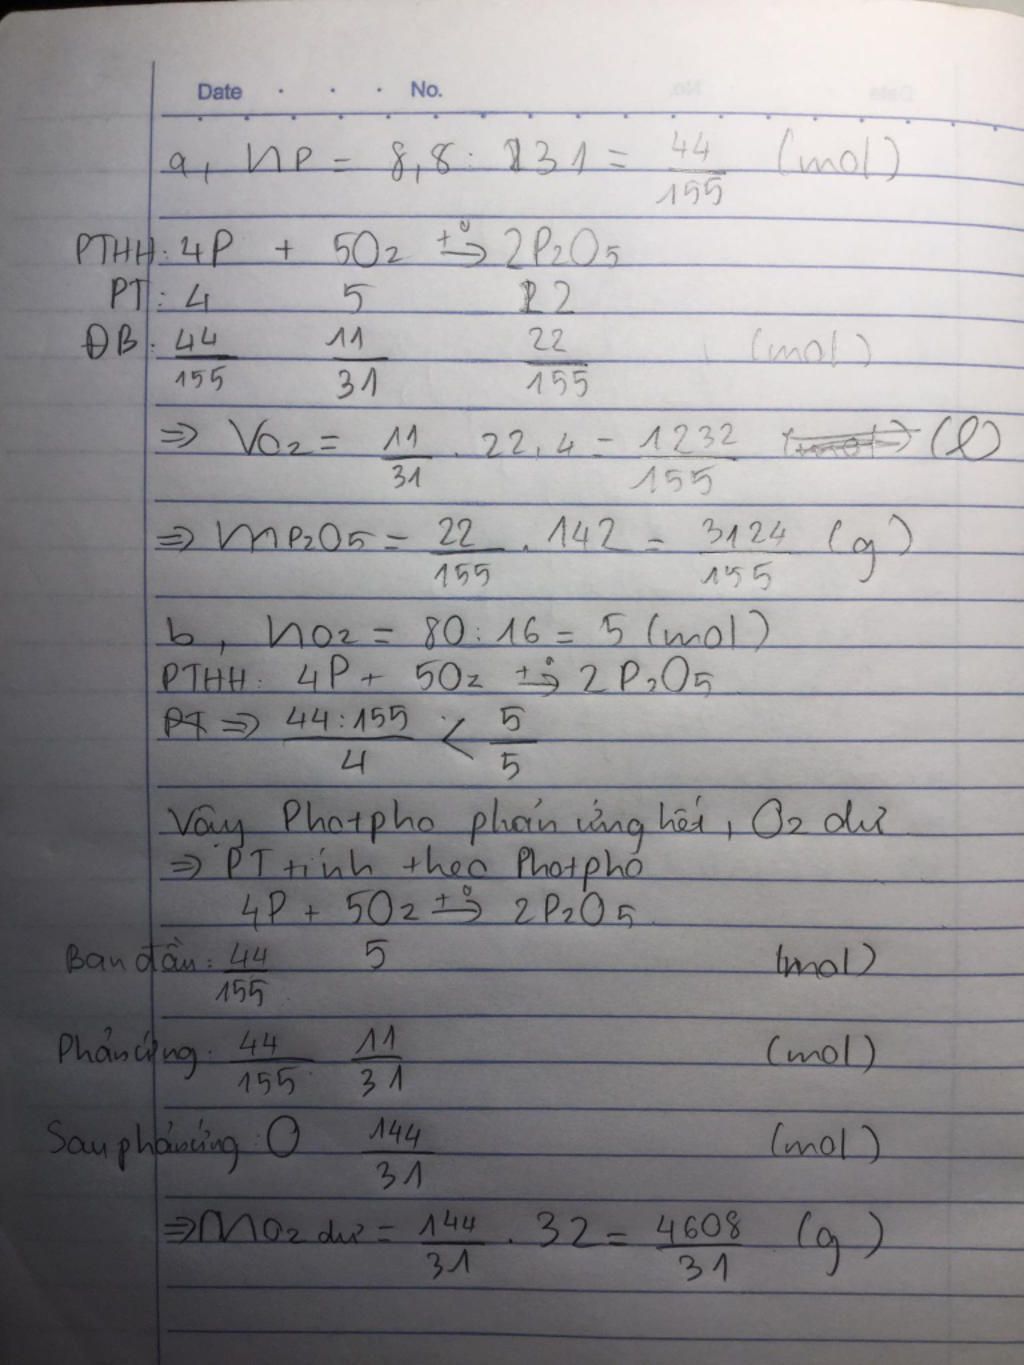 Date . . . No.
a, nP = 8,8 : 31 = 44/155 (mol)
PTHH: 4P + 5O2 t° → 2P2O5
PT: 4 5 2
ĐB: 44/155 11/31 22/155 (mol)
⇒ VO2 = 11/31 . 22,4 = 1232/155 (l)
⇒ mP2O5 = 22/155 . 142 = 3124/155 (g)
b, nO2 = 80 : 16 = 5 (mol)
PTHH: 4P + 5O2 t° → 2P2O5
PT ⇒ 44:155/4 < 5/5
Vậy Photpho phản ứng hết, O2 dư
⇒ PT tính theo Photpho
4P + 5O2 t° → 2P2O5
Ban đầu: 44/155 5 (mol)
Phản ứng: 44/155 11/31 (mol)
Sau phản ứng: 0 144/31 (mol)
⇒ mO2 dư = 144/31 . 32 = 4608/31 (g)